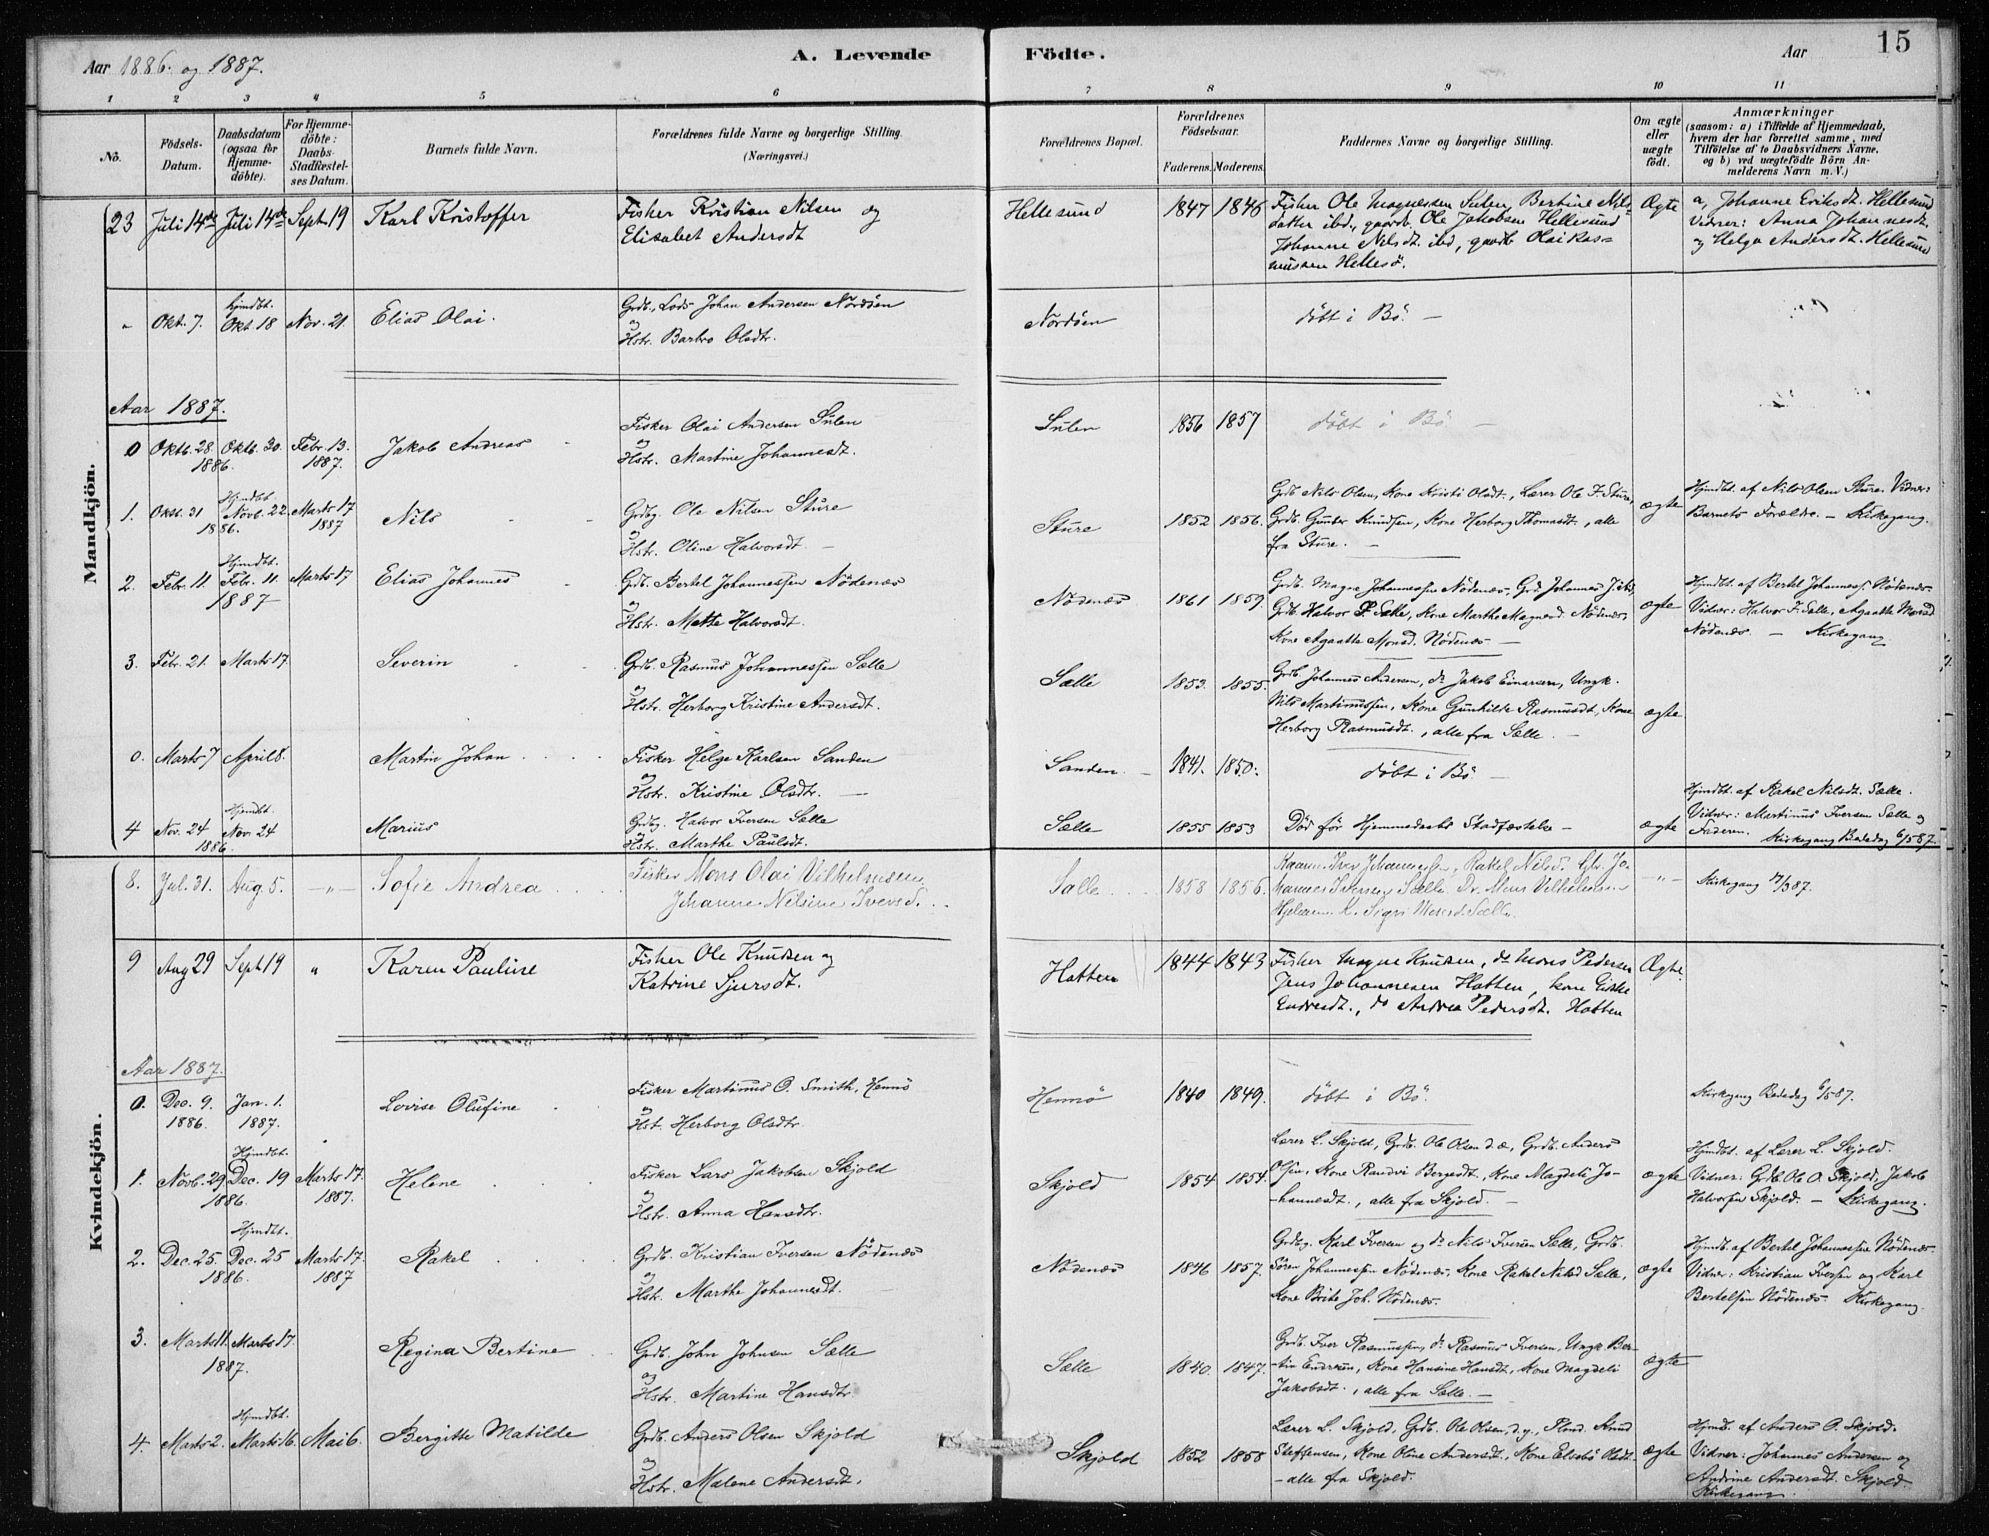 15
Aar 1886 og 1887.
A. Levende Födte.
Aar
1 2 3 4 5 6 7 8 9 10 11
No.
Födsels-Datum.
Daabsdatum (ogsaa for Hjemme-döbte).
For Hjemme-döbte: Daabs-Stadfæstel-ses Datum.
Barnets fulde Navn.
Forældrenes fulde Navne og borgerlige Stilling. (Næringsvei.)
Forældrenes Bopæl.
Forældrenes Födselsaar.
Faderens. Moderens.
Faddernes Navne og borgerlige Stilling.
Om ægte eller uægte födt.
Anmærkninger
(saasom: a) i Tilfælde af Hjemmedaab,
hvem der har forrettet samme, med
Tilföielse af to Daabsvidners Navne,
og b) ved uægtefödte Börn An-
melderens Navn m. V.)
Mandkjön.
23 Juli 14de Juli 14de Sept 19 Karl Kristoffer
Fisker Kristian Nilsen og
Elisabet Andersdt
Hellesund 1847 1846
Fisker Ole Magnesen Sulen, Bertine Nils-
datter ibd., gaardb. Ole Jakobsen Hellesund
Johanne Nilsdt. ibd, gaardb Olai Ras-
mussen Hellesö.
Ægte
a, Johanne Eriksdt. Hellesund
Vidner: Anna Johannesdt.
og Helga Andersdt. Hellesund
" Okt. 7. hjmdbt. Okt. 18 Nov. 21. Elias Olai.
Grdb., Lods Johan Andersen Nordöen
og
Hstr. Barbro Olsdtr.
Nordöen
döbt i Bö. —
Aar 1887.
0 Oktb. 28. 1886. Oktb. 30. Febr. 13. 1887. Jakob Andreas
Fisker Olai Andersen Sulen
og
Hstr. Martine Johannesdt.
Sulen 1856 1857
döbt i Bö —
1. Oktb. 31 1886. Hjmdbt Novb. 22. Marts 17 1887 Nils
Grdbg. Ole Nilsen Sture
og
Hstr. Oline Halvorsdt. —
Sture 1852 1856.
Grdb Nils Olsen, Kone Kristi Olsdt., Lærer Ole J. Sture,
Grdb. Gunder Knudsen, Kone Herborg Thomasdt., alle
fra Sture. —
ægte
Hjmdbt. af Nils Olsen Sture. Vidner:
Barnets Forældre. — Kirkegang.
2. Febr. 11. Hjmdbt. Febr. 11. 1887 Marts 17 Elias Johannes
Grdb. Bertel Johannessen Nödenæs
og
Hstr. Mette Halvorsdt.
Nödenæs 1861 1859.
Grdb. Magne Johannessen Nödenæs, Grd. Johannes J. ibd,
Grdb. Halvor Sælle, Kone Marthe Magnesd. Nödenæs,
Kone Agaathe Monsd. Nödenæs —
ægte
Hjmdbt. af Bertel Johanness. Nödenæs
Vidner: Halvor J. Sælle, Agaathe Monsd
Nödenæs. — Kirkegang
3. Febr. 21. Marts 17. Severin
Grdb. Rasmus Johannessen Sælle
og
Hstr. Herborg Kristine Andersdt.
Sælle 1853. 1855.
Grdb. Johannes Andersen, do Jakob Einarsen, Ungk.
Nils Martinussen, Kone Gunhilde Rasmusdt, Kone
Herborg Rasmusdt., alle fra Sælle. —
ægte
0. Marts 7 April 8. Martin Johan
Fisker Helge Karlsen Sanden
og
Hstr. Kristine Olsdtr. —
Sanden. — 1841. 1850.
döbt i Bö —
4 Nov. 24 1886 Hjmdbt. Nov. 24 Marius
Grdbg. Halvor Iversen Sælle
Hstr. Marthe Paulsdt.
Sælle 1855 1853
Död för Hjemmedaabs Stadfæstelse —
ægte
Hjmdbt. af Rakel Nilsdt. Sælle.
Vidner: Martinus Iversen Sælle og
Faderen. Kirkegang Bededag 6/5 87.
Kvindekjön.
8. Jul. 31. Aug. 5. —"— Sofie Andrea
Fisker Mons Olai Vilhelmsen
Johanne Nilsine Iversd.
Sælle 1858 1856.
Iver Johannessen, Rakel Nilsd. Jo-
hannes Iversen Sælle Mons Vilhelmsen
K. Sigri Monsd. Sælle.
—"—
Kirkegang 17/3 87.
9 Aug 29 Sept 19 " Karen Pauline
Fisker Ole Knudsen og
Katrine Sjursdt.
Hatten 1844 1843
Fisker Magne Knutsen, do Mons Pedersen
Jens Johannesen Hatten, kone
Endresdt., do Andrea Pedersdt. Hatten
Ægte.
Aar 1887.
0. Dec. 9. 1886. Jan. 1. 1887. Lovise Olufine
Fisker Martinus O. Smith, Hennö
og
Hst. Herborg Olsdtr.
Hennö 1840 1849.
döbt i Bö.
Kirkegang Bededag 6/5 87.
1. Novb. 29 1886. Hjmdbt. Dec. 19 Marts 17. 1887. Helene
Fisker Lars Jakobsen Skjold
og
Hstr. Anna Hansdtr.
Skjold 1854 1854.
Lærer L. Skjold, Grdb. Ole Olsen d.æ, Grdb. Anders
Olsen, Kone Randvi Bergesdt, Kone Magdeli Jo-
hannesdt., alle fra Skjold. —
ægte
Hjmdbt. af Lærer L. Skjold.
Vidner: Grdb Ole O. Skjold, Jakob
Halvorsen Skjold. — Kirkegang.
2. Dec. 25. 1886. Hjmdbt. Dec. 25 Marts 17. 1887 Rakel
Grdb. Kristian Iversen Nödenæs
og
Hstr. Marthe Johannesdt.
Nödenæs 1846 1857.
Grdbg. Karl Iversen og do Nils Iversen Sælle, Grdb.
Sören Johannessen Nödenæs, Kone Rakel Nilsd Sælle,
Kone Brite Joh. Nödenæs.
ægte
Hjmdb. af Bertel Johannessen Nödenæs.
Vidner: Kristian Iversen og Karl
Bertelsen Nödenæs. Kirkegang.
3. Marts 11. 1887. Marts 17. Regina Bertine
Grdb. John Johnsen Sælle
og
Hstr. Martine Hansdtr.
Sælle 1840. 1847.
Grdb. Iver Rasmussen, do Rasmus Iversen, Ungk. Ber-
tin Endresen, Kone Hansine Hansdt, Kone Magdeli
Jakobsdt., alle fra Sælle. —
ægte
4. Marts 2. Hjmdbt. Marts 16. Mai 6. Bergitte Matilde
Grdb. Anders Olsen Skjold
og
Hstr. Malene Andersdt.
Skjold 1852 1858
Lærer L. Skjold, Grdb. Ole Olsen, d.y., Knud
Steffensen, Kone Oline Andersdt., Kone Elsebö Olsdt.
— alle fra Skjold.
ægte
Hjmdb. af Anders O. Skjold.
Vidner: Johannes Andersen og
Andrine Andersdt. Skjold.
Kirkegang.